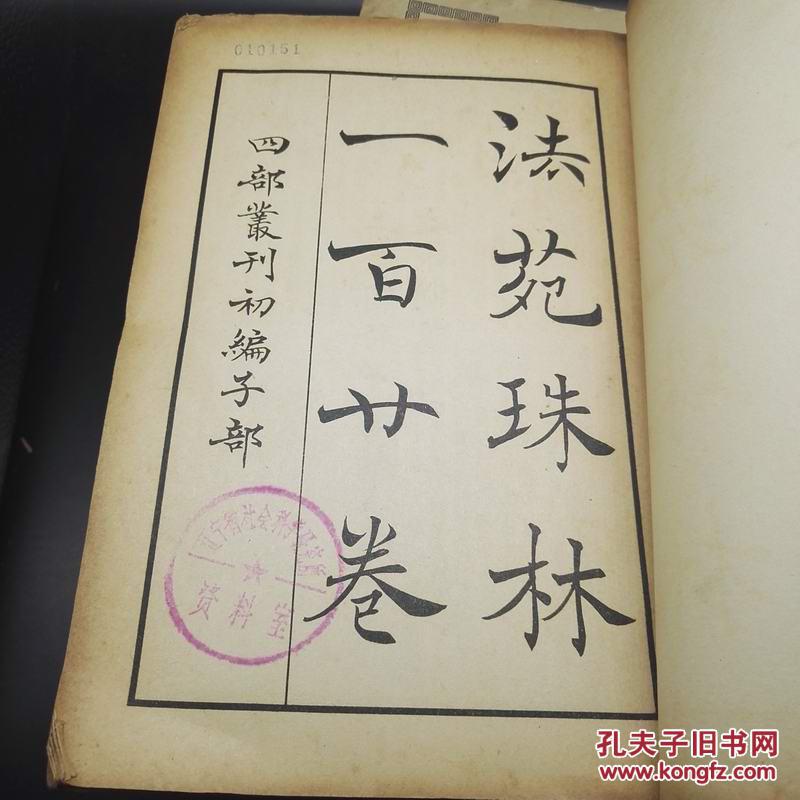 法苑珠林
一百廿卷
四部叢刊初編子部
010151
資料室
孔夫子旧书网
www.kongfz.com